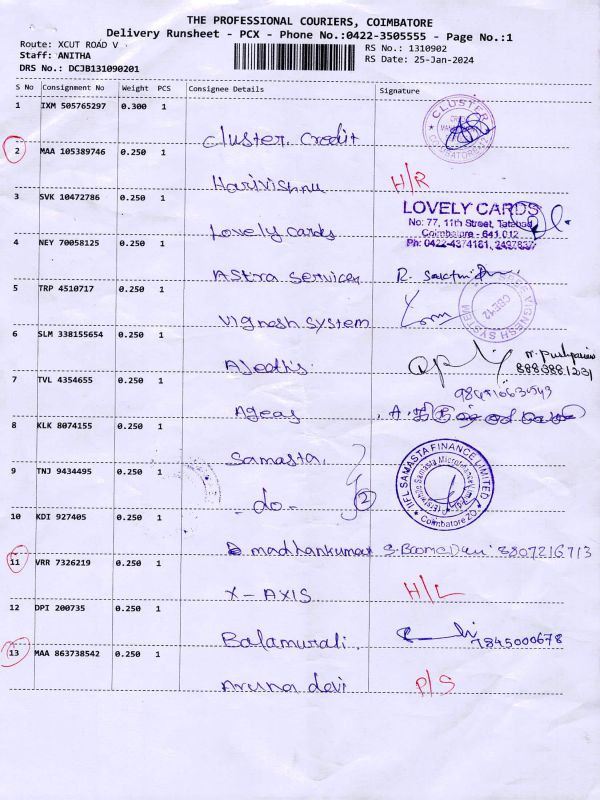 THE PROFESSIONAL COURIERS, COIMBATORE
Delivery Runsheet - PCX - Phone No.:0422-3505555 - Page No.:1
Route: XCUT ROAD V
Staff: ANITHA
DRS No.: DCJB131090201
RS No.: 1310902
RS Date: 25-Jan-2024
S No Consignment No Weight PCS Consignee Details Signature
1 IXM 505765297 0.300 1 Cluster Credit CLUSTER
2 MAA 105389746 0.250 1 Harivishnu H/R
3 SVK 10472786 0.250 1 Lovely Cards LOVELY CARDS
No: 77, 11th Street, Tatabad
Coimbatore - 641 012
Ph: 0422-4374161, 2497837
4 NEY 70058125 0.250 1 Astra Services R.
5 TRP 4510717 0.250 1 Vignesh System VIGNESH SYSTEM CBE-12
6 SLM 338155654 0.250 1 Ajeeth's
7 TVL 4354655 0.250 1 Ageas A.
8 KLK 8074155 0.250 1 Samasta IIFL SAMASTA FINANCE LIMITED
Coimbatore ZO
9 TNJ 9434495 0.250 1 - do - 2
10 KDI 927405 0.250 1 madhankumar S. 8807216713
11 VRR 7326219 0.250 1 X - AXIS H/L
12 DPI 200735 0.250 1 Balamurali. 7845000678
13 MAA 863738542 0.250 1 Aruna devi P/S